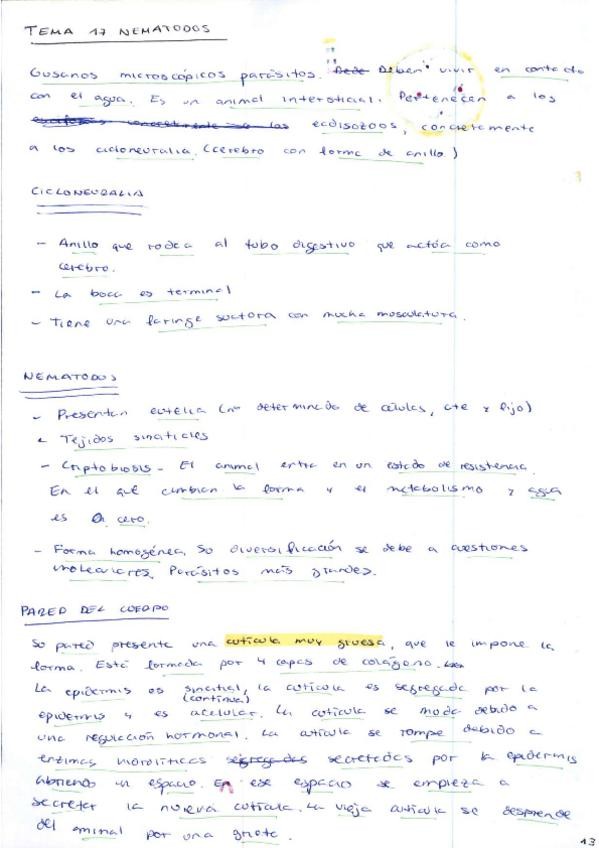 TEMA 17 NEMATODOS
Gusanos microscópicos parásitos. Debe Deben vivir en contacto
con el agua. Es un animal intersticial. Pertenecen a los
concretamente a los ecdisozoos, concretamente
a los cicloneuralia. (cerebro con forma de anillo)
CICLONEURALIA
- Anillo que rodea al tubo digestivo que actúa como
cerebro.
- La boca es terminal
- Tiene una faringe suctora con mucha musculatura.
NEMATODOS
- Presentan eutelia (nº determinado de células, cte y fijo)
- Tejidos sincitiales
- Criptobiosis - El animal entra en un estado de resistencia.
En el que cambian la forma y el metabolismo y agua
es 0 cero.
- Forma homogénea. Su diversificación se debe a cuestiones
moleculares. Parásitos más grandes.
PARED DEL CUERPO
Su pared presenta una cutícula muy gruesa, que le impone la
forma. Está formada por 4 capas de colágeno.
La epidermis es sincitial, la cutícula es segregada por la
(continua)
epidermis y es acelular. La cutícula se muda debido a
una regulación hormonal. La cutícula se rompe debido a
enzimas hidrolíticas segregadas secretadas por la epidermis
abriendo un espacio. En ese espacio se empieza a
secretar la nueva cutícula. La vieja cutícula se desprende
del animal por una grieta.
13